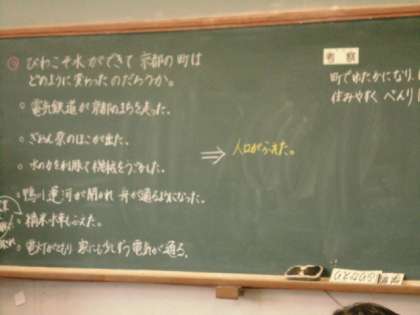 びわこそ水ができて京都の町は
どのように変わったのだろうか。
電気鉄道が京都のまちを走った。
ぎおん祭のほこが出た。
水の力を利用して機械をうごかした。
鴨川運河が開かれ舟が通るようになった。
精米水車もふえた。
電灯がともり家にも少しずつ電気が通る。
⇒ 人口がふえた。
考察
町でゆたかになり、
住みやすく べんり